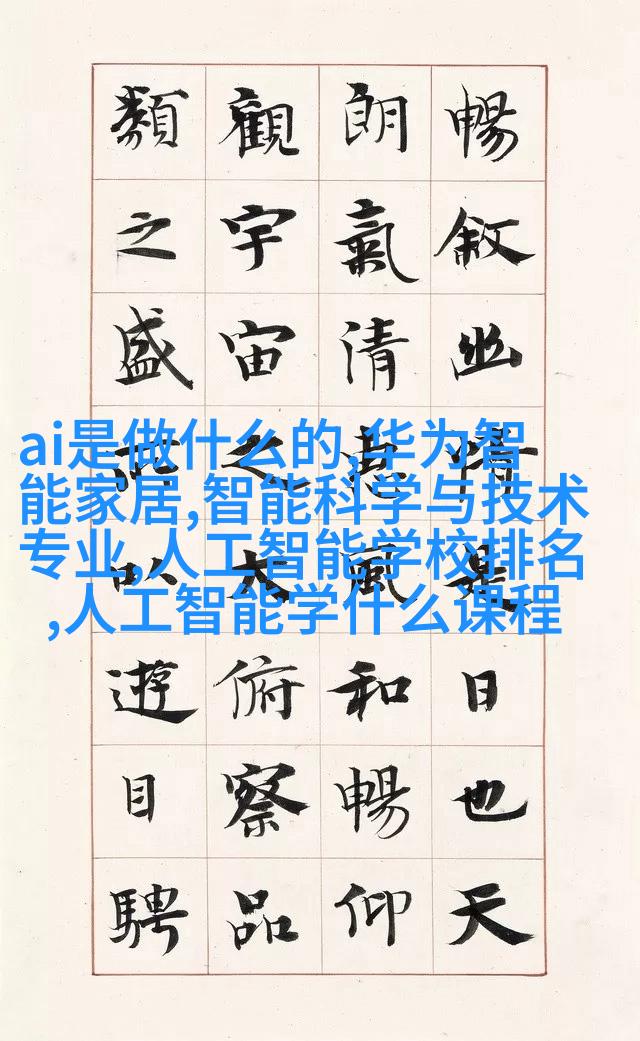 暢敘幽情是日也天
朗氣清惠風和暢仰
觀宇宙之大俯察品
類之盛所以遊目騁
ai是做什么的,华为智
能家居,智能科学与技术
专业,人工智能学校排名
,人工智能学什么课程